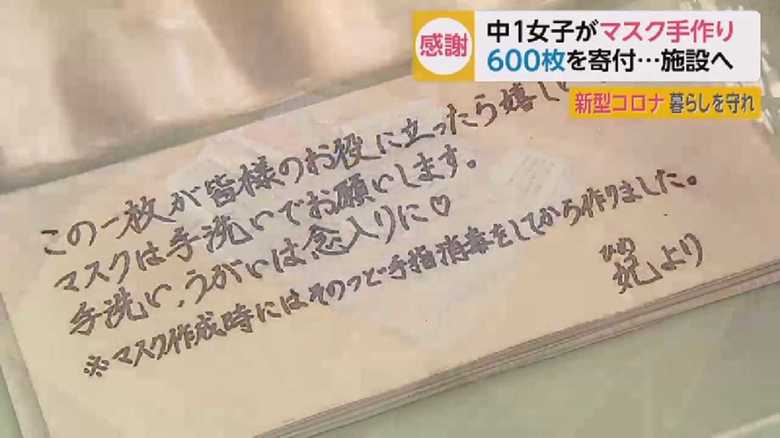 感謝
中1女子がマスク手作り
600枚を寄付…施設へ
新型コロナ 暮らしを守れ
この一枚が皆様のお役に立ったら嬉し
マスクは手洗いでお願いします。
手洗い、うがいは念入りに♡
※マスク作成時にはそのつど手指消毒をしてから作りました。
ひめ
妃より